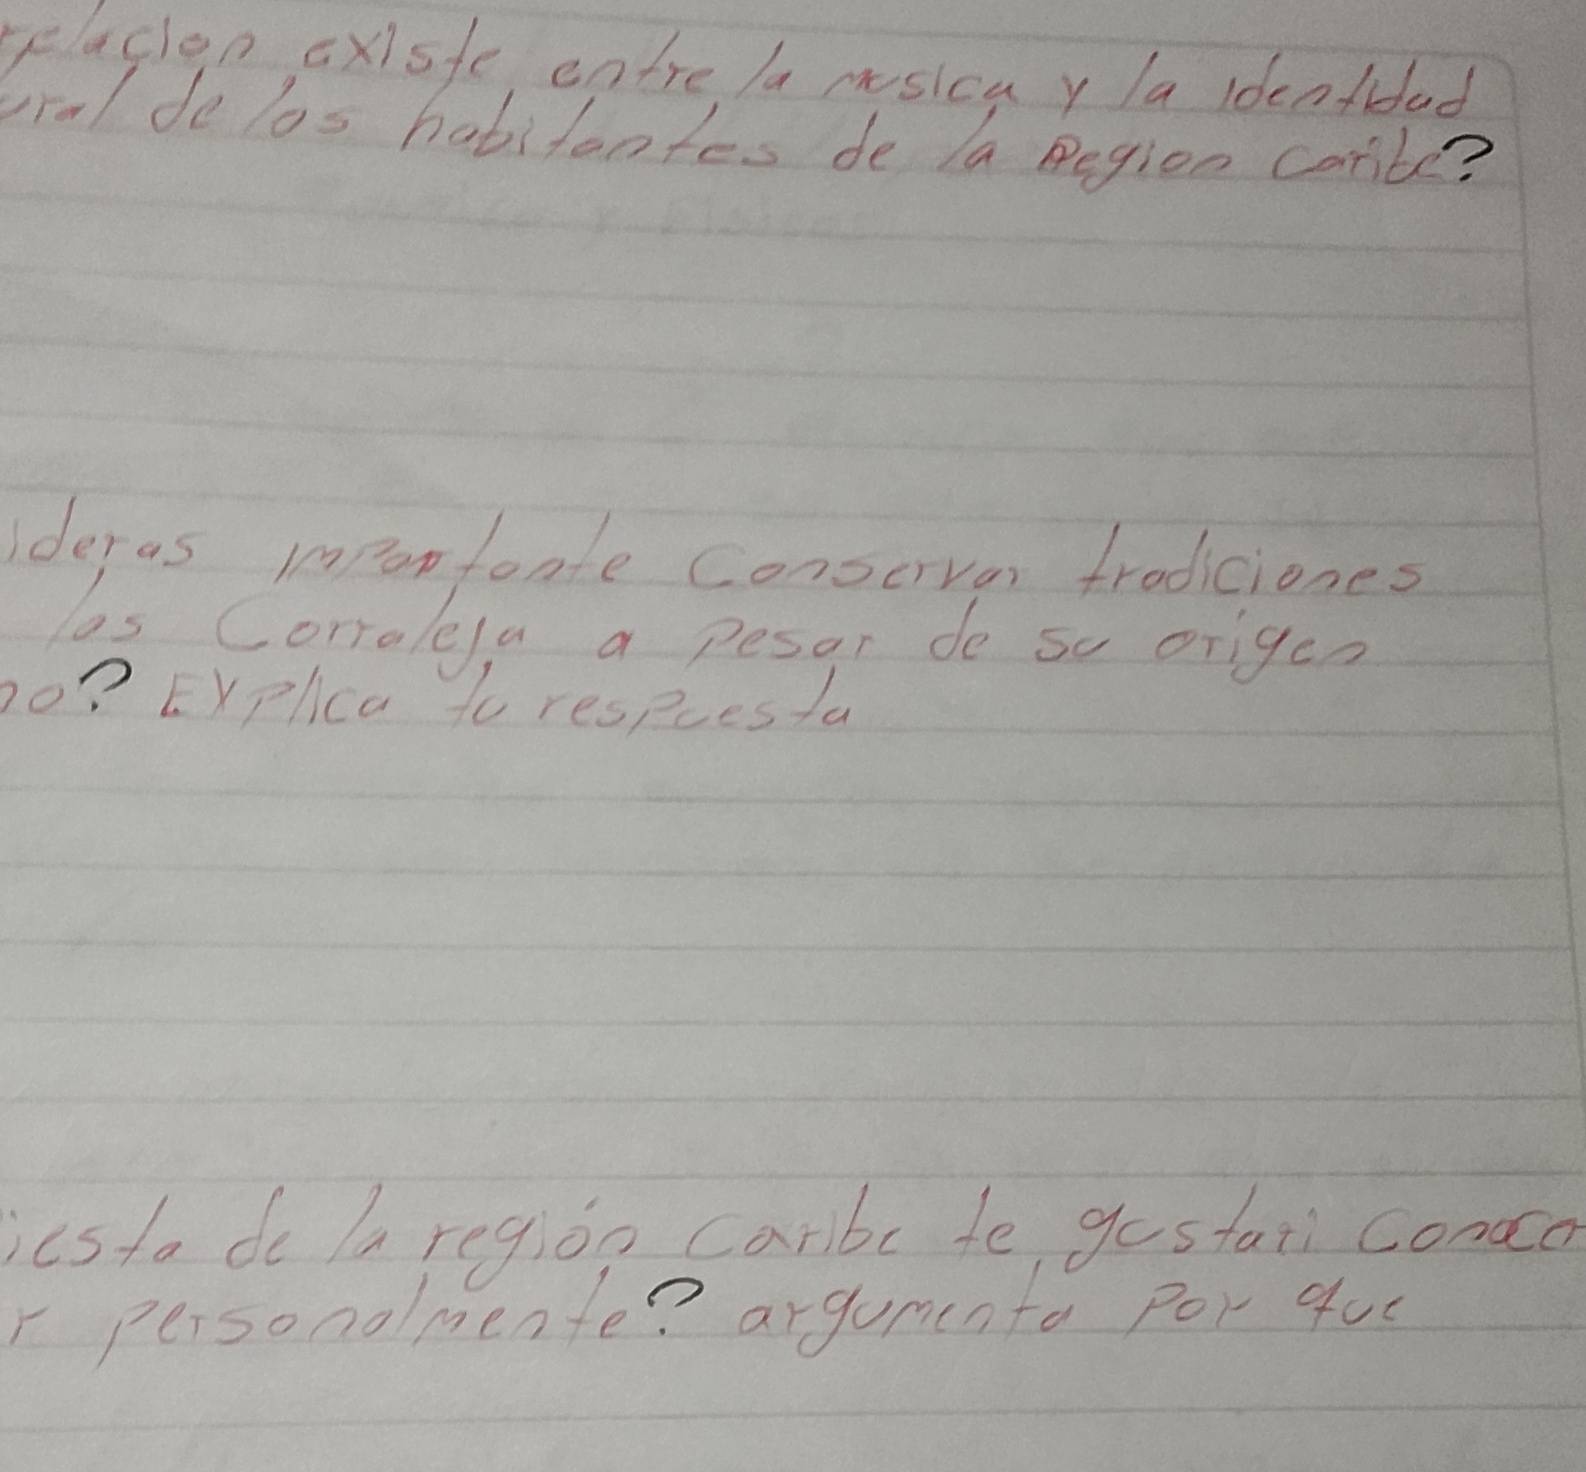 relacion existe entre la musica y la identidad
ural de los habitantes de la Region caribe?
ideras importante Conservar tradiciones
las Corraleja a pesar de su origen
no? Explica tu respuesta
iesta de la región caribe te gustari conoce
r personalmente? argumenta por que